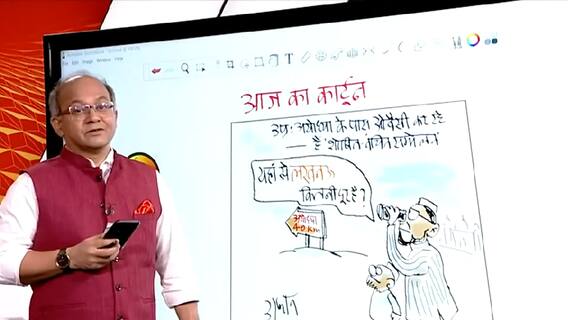 आज का कार्टून
उप्र: अयोध्या के पास ओवैसी कर रहे
हैं 'शोषित वंचित सम्मेलन'
यहां से लखनऊ
कितनी दूर है?
अयोध्या
40 KM